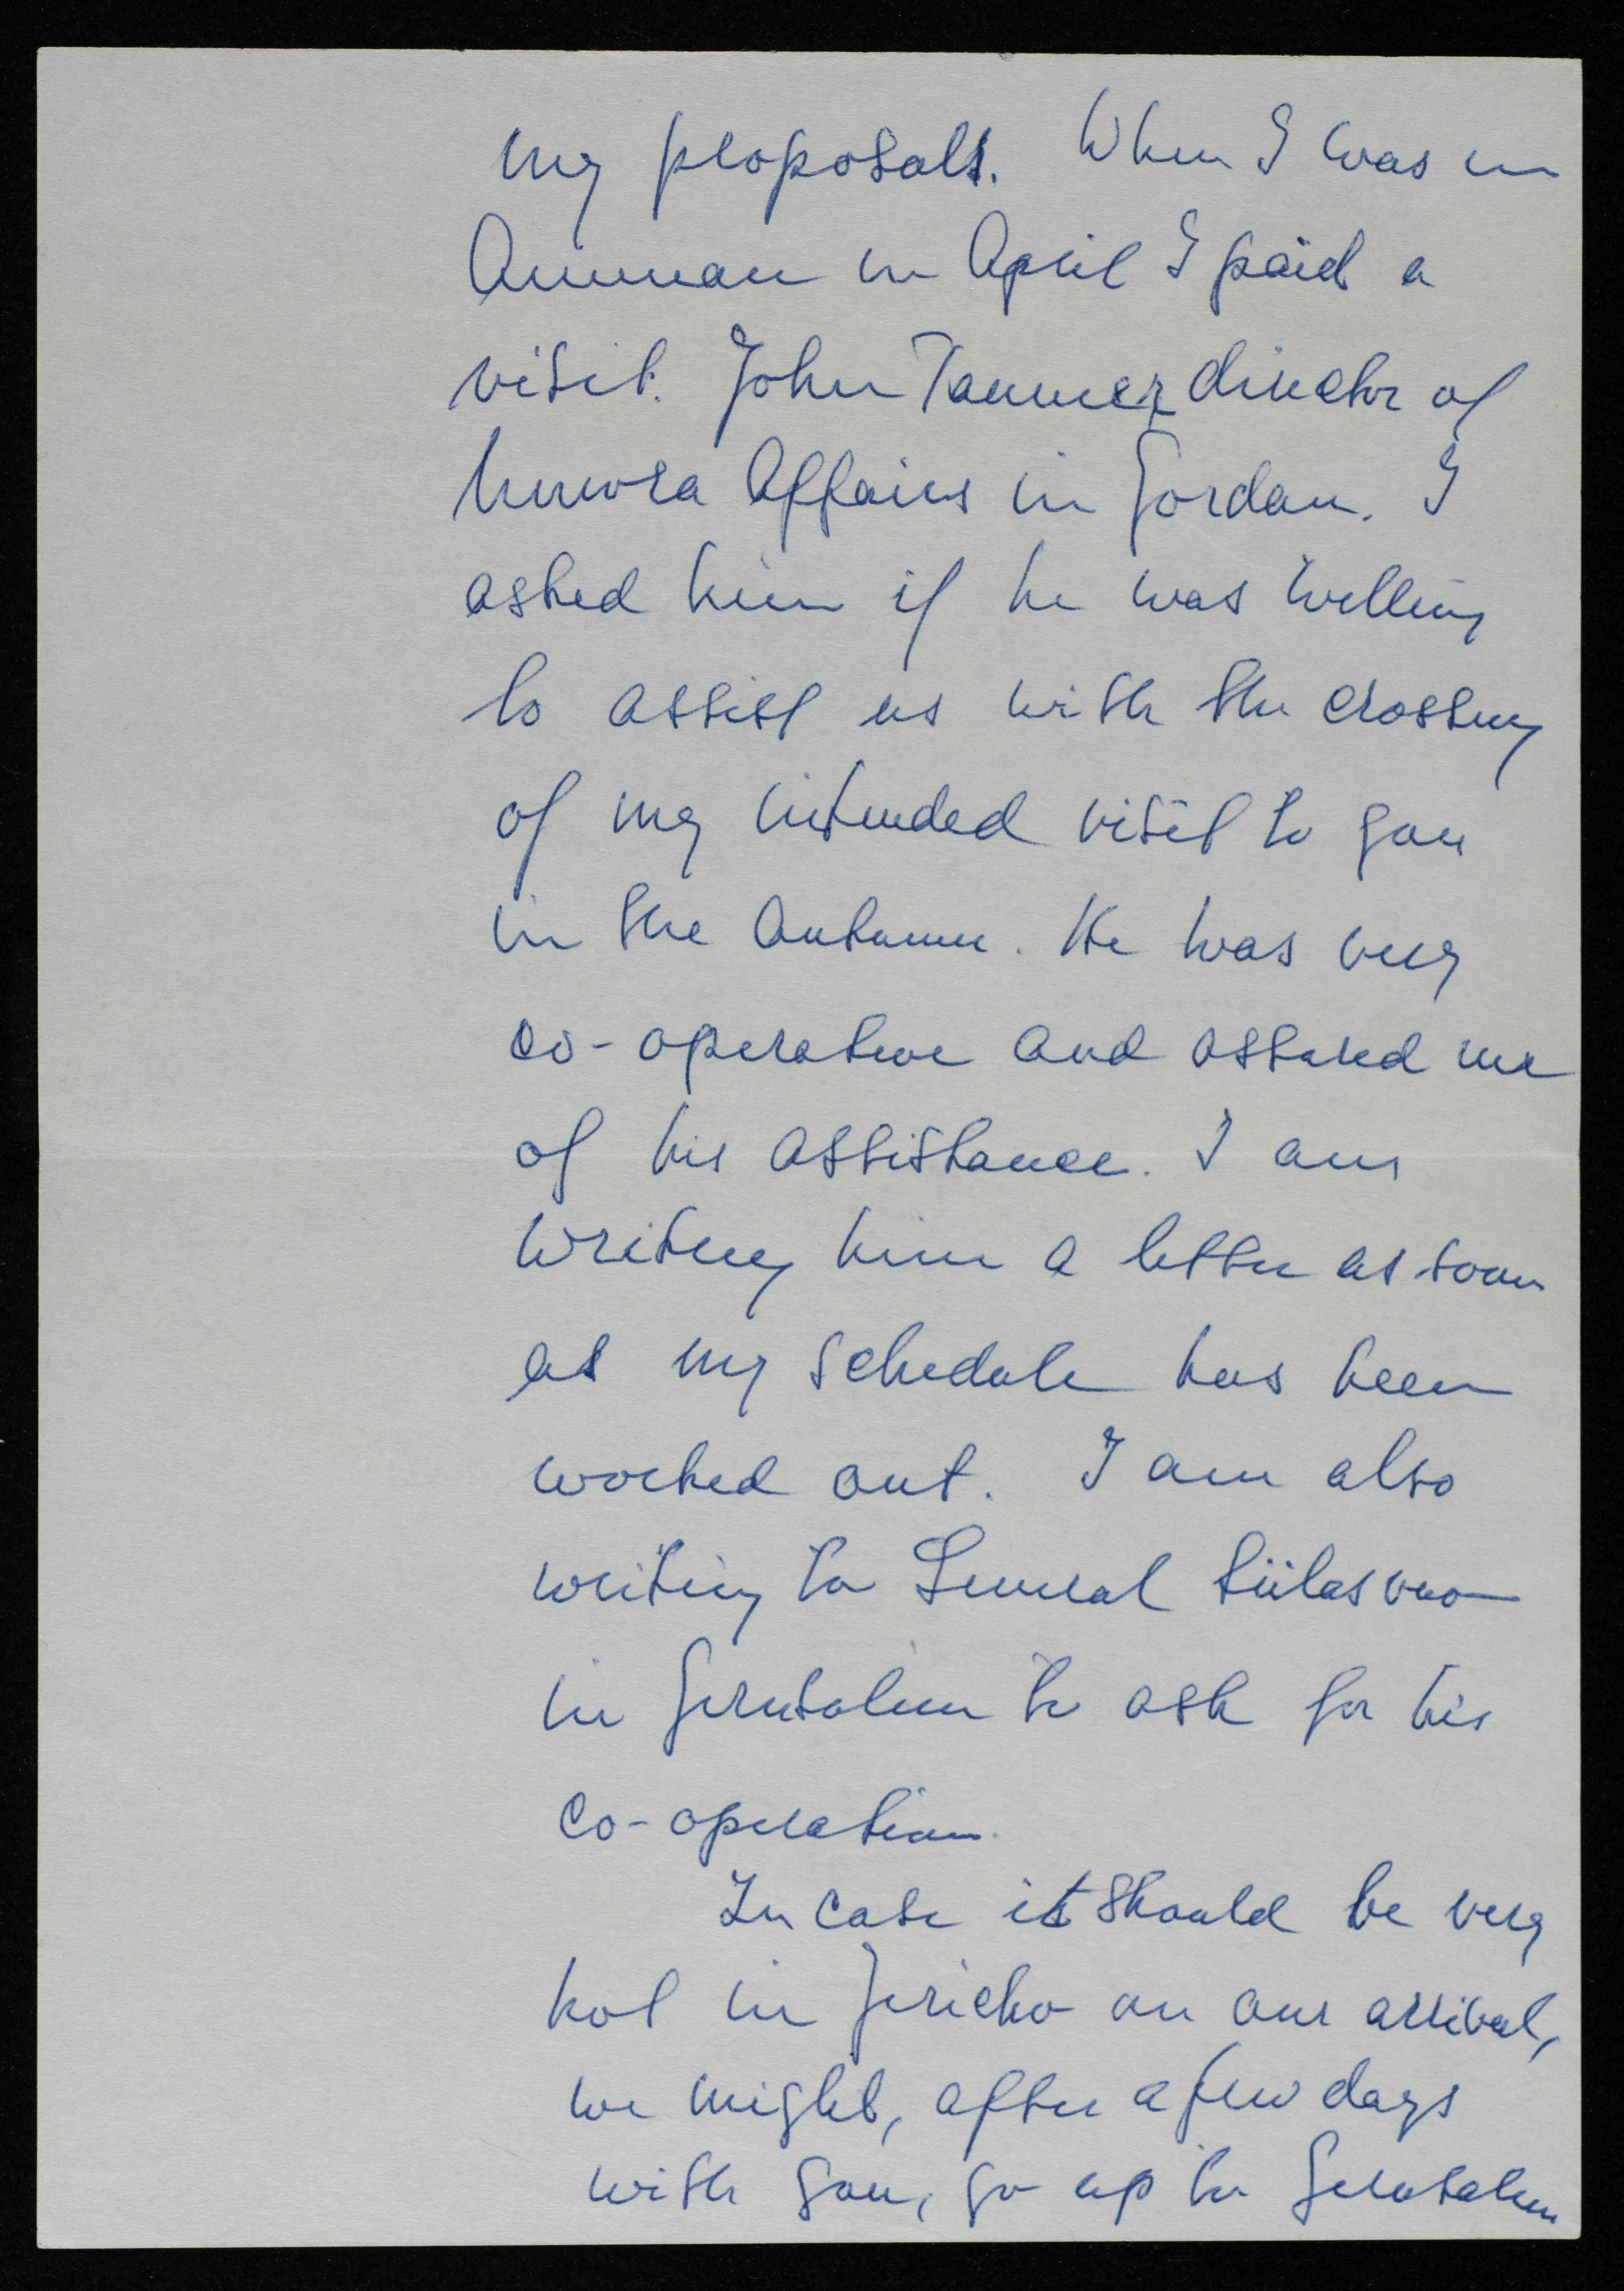 my proposals. When I was in
Amman in April I paid a
visit. John Tanner, director of
Unwra Affairs in Jordan. I
asked him if he was willing
to assist us with the crossing
of my intended visit to you
in the Autumn. He was very
co-operative and assured me
of his assistance. I am
writing him a letter as soon
as my schedule has been
worked out. I am also
writing to General Siilasvuo
in Jerusalem to ask for his
co-operation.
In case it should be very
hot in Jericho on our arrival,
we might, after a few days
with you, go up to Jerusalem